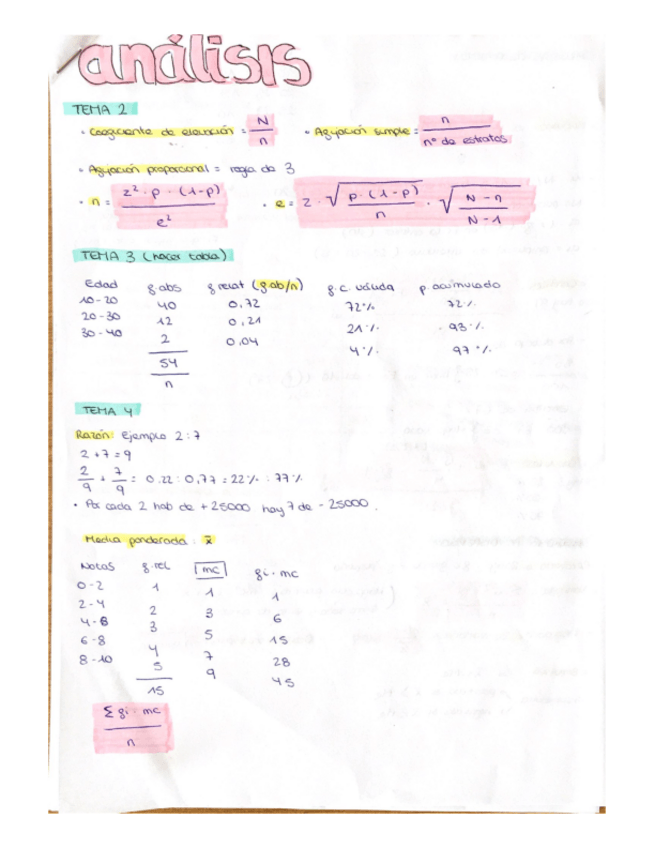 análisis
TEMA 2
· Coeficiente de elevación = N / n · Afijación simple = n / nº de estratos
· Afijación proporcional = regla de 3
· n = z² · p · (1-p) / e² · e = z · √ p · (1-p) / n · √ N - n / N - 1
TEMA 3 (hacer tabla)
Edad f.abs f.relat (f.ab/n) f.c. válida p. acumulado
10-20 40 0,72 72% 72%
20-30 12 0,21 21% 93%
30-40 2 0,04 4% 97%
54
n
TEMA 4
Razón: Ejemplo 2:7
2+7=9
2/9 + 7/9 = 0.22 : 0,77 = 22% : 77%
· Por cada 2 hab de +25000 hay 7 de -25000.
Media ponderada: x̄
Notas f.rel mc fi · mc
0-2 1 1 1
2-4 2 3 6
4-6 3 5 15
6-8 4 7 28
8-10 5 9 45
15
Σ fi · mc / n